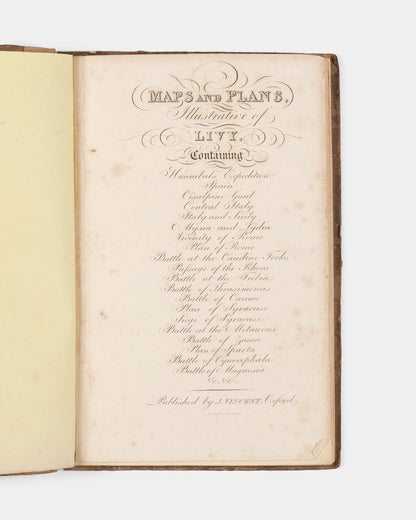 MAPS AND PLANS,
Illustrative of
LIVY,
Containing
Hannibal's Expedition
Spain
Cisalpine Gaul
Central Italy
Italy and Sicily
Mysia and Lydia
Vicinity of Rome
Plan of Rome
Battle at the Caudine Forks
Passage of the Rhone
Battle at the Trebia
Battle of Thrasimenus
Battle of Canna
Plan of Syracuse
Siege of Syracuse
Battle at the Metaurus
Battle of Zama
Plan of Sparta
Battle of Cynocephala
Battle of Magnesia
&c. &c.
Published by J. VINCENT, Oxford.